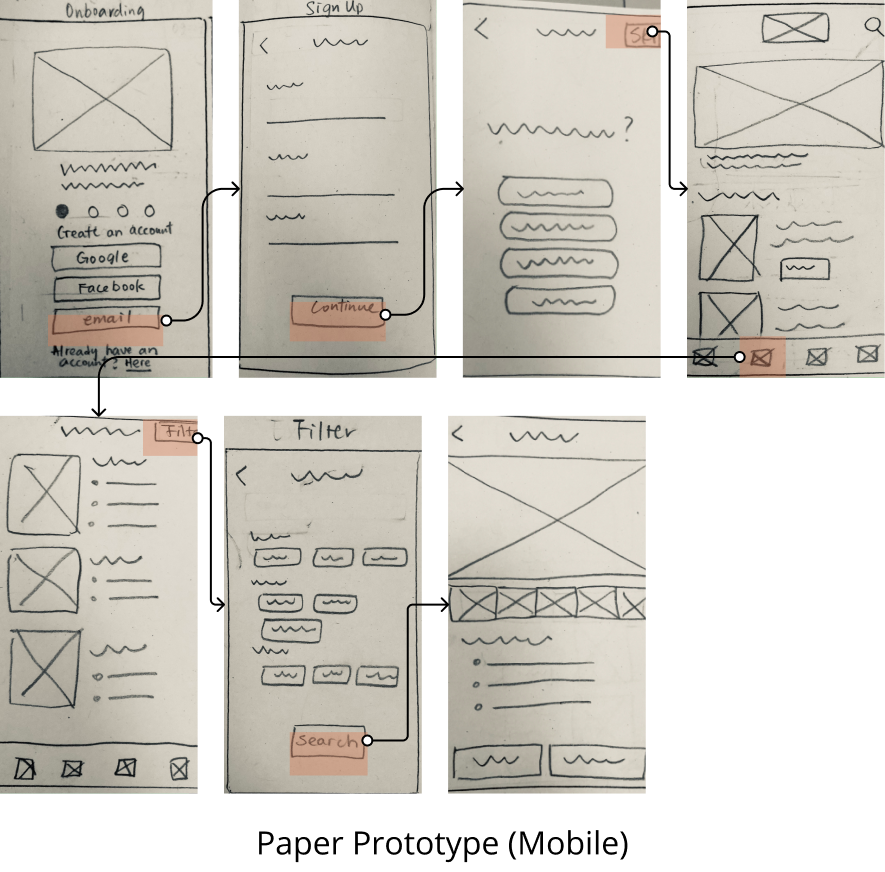 Onboarding
Create an account
Google
Facebook
email
Already have an
account? Here
Sign Up
Continue
?
Filter
Search
Paper Prototype (Mobile)